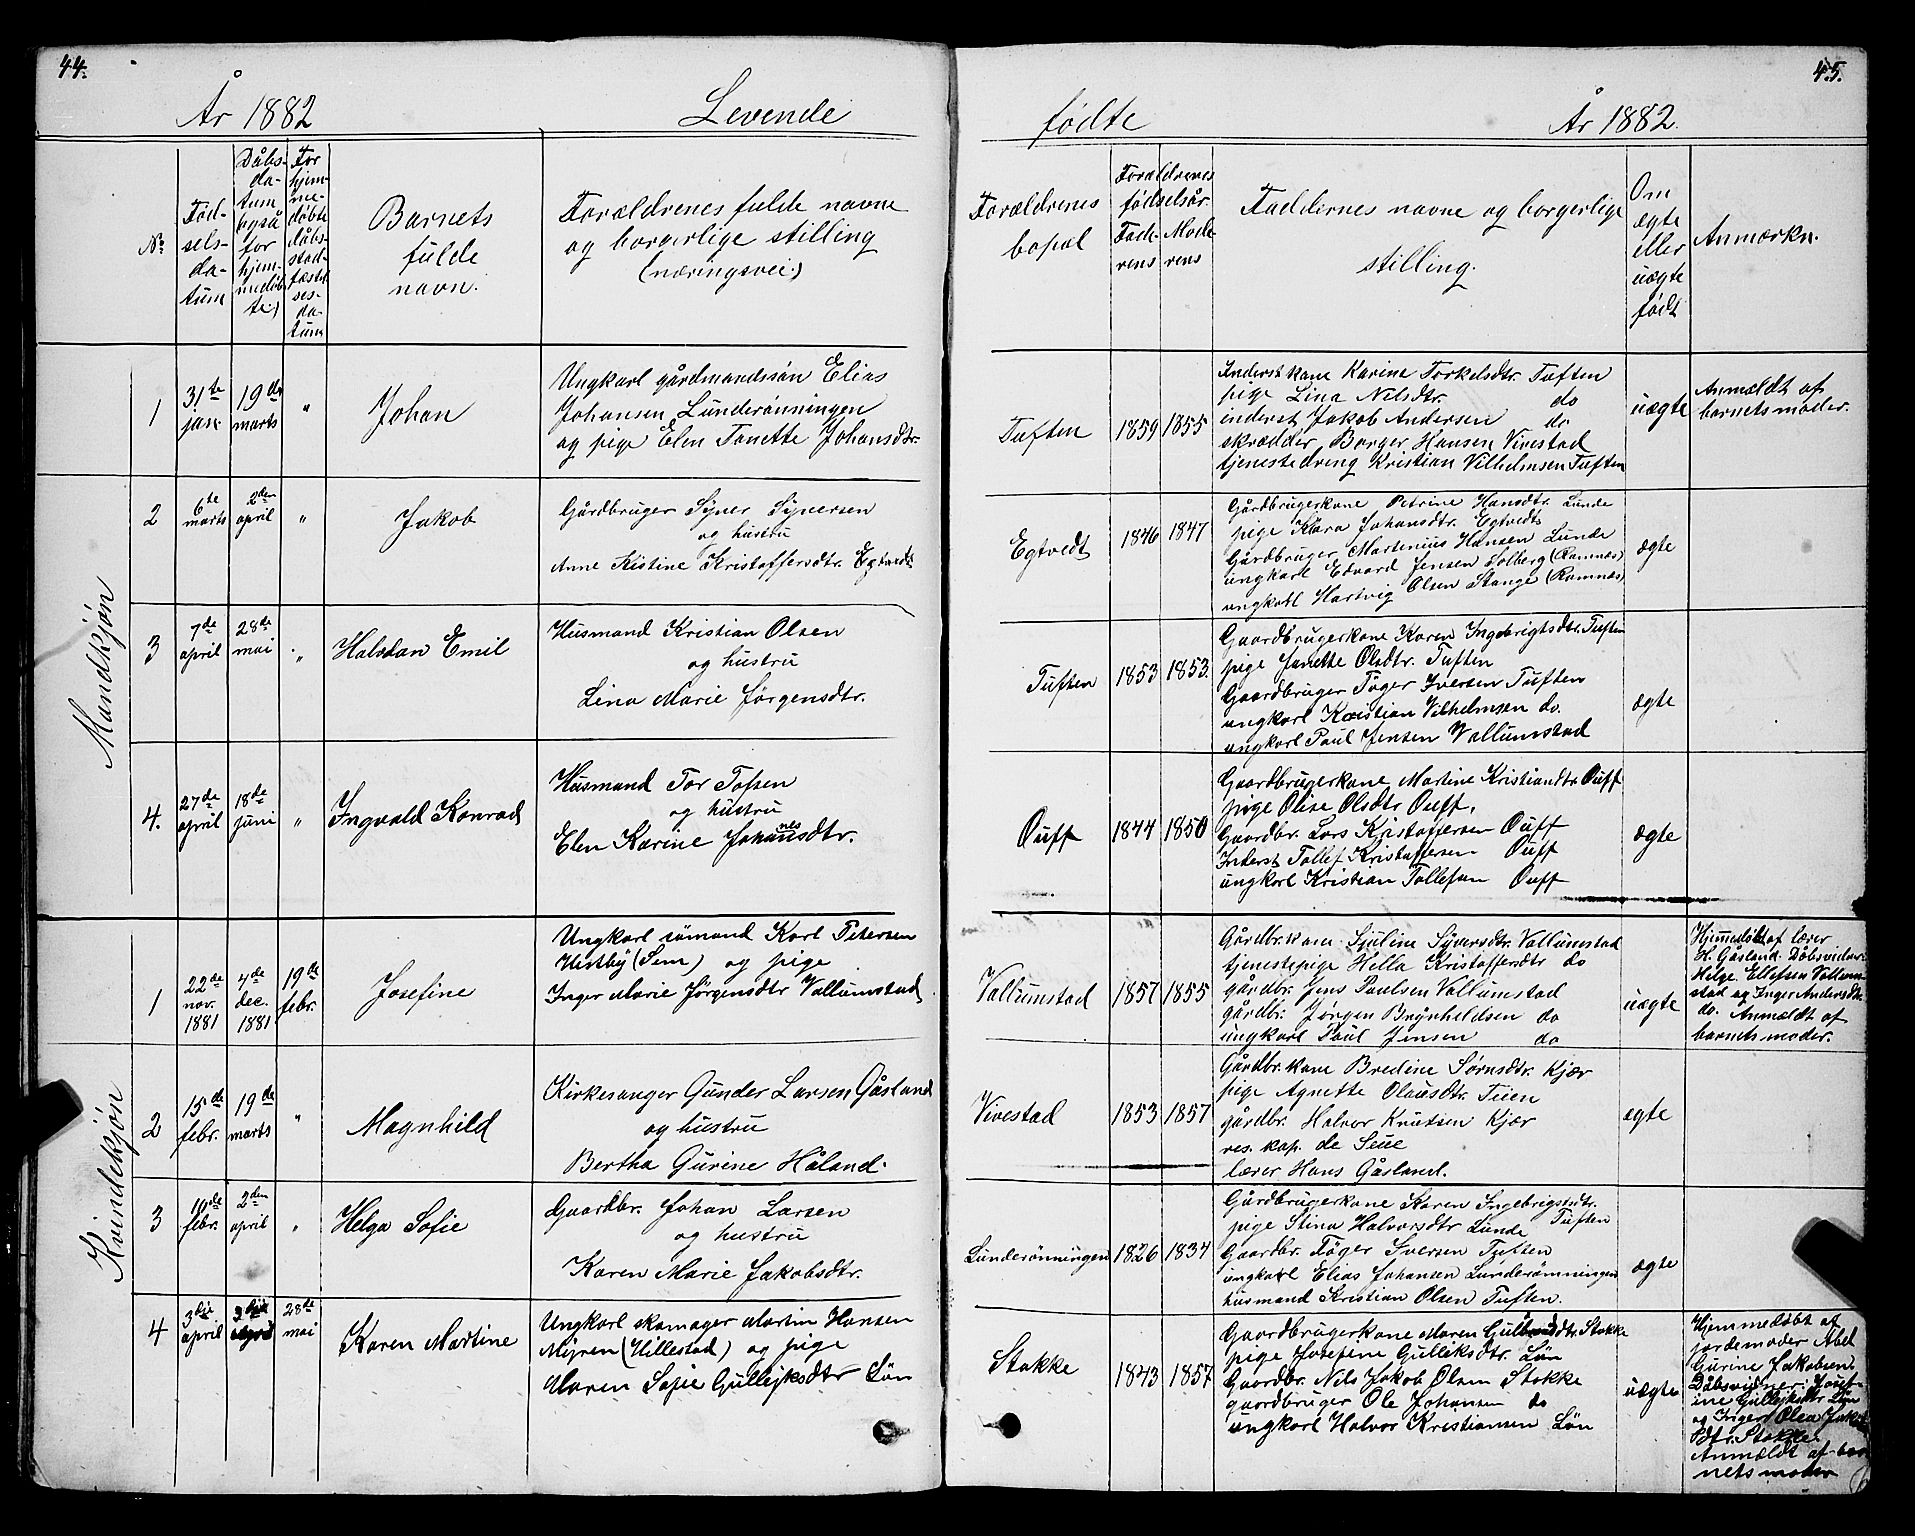 44.
År 1882
Levende
No
Fød-
sels-
da-
tum
Dåbs-
da-
tum
også
for
hjem-
medøb
te)
For
hjem-
me-
døbte
dåbs-
stad-
fæstel
ses-
da-
tum
Barnets
fulde
navn.
Forældrenes fulde navne
og borgerlige stilling
(næringsvei.)
Mandkjøn
1
31te
jan.
19de
marts
"
Johan
Ungkarl gårdmandssøn Elias
Johansen Lunderønningen
og pige Elen Tonette Johansdtr.
2
6te
marts
2den
april
"
Jakob
Gårdbruger Syver Syversen
og hustru
Anne Kistine Kristoffersdtr. Egtvedt
3
7de
april
28de
mai
"
Halvdan Emil
Husmand Kristian Olsen
og hustru
Lina Marie Jørgensdtr.
4.
27de
april
18de
juni
"
Ingvald Konrad
Husmand Tor Tofsen
og hustru
Elen Karine Johannesdtr.
Kvindekjøn
1
22de
nov.
1881
4de
dec.
1881
19de
febr.
Josefine
Ungkarl sømand Karl Petersen
Hestby (Sem) og pige
Inger Marie Jørgensdtr Vallumstad
2
15de
febr.
19de
marts
"
Magnhild
Kirkesanger Gunder Larsen Gåsland
og hustru
Bertha Gurine Håland.
3
febr.
2den
april
"
Helga Sofie
Gaardbr. Johan Larsen
og hustru
Karen Marie Jakobsdtr.
4
3die
april
3die
april
28de
mai
Karen Martine
Ungkarl skomager Martin Hansen
Myren (Hillestad) og pige
Maren Sofie Gullejksdtr Løn
45.
fødte
År 1882.
Forældrenes
bopæl
Forældrenes
fødselsår.
Fade-
rens
Mode
rens
Faddernes navne og borgerlige
stilling.
Om
ægte
eller
uægte
født
Anmærkn.
Tuften
1859
1855
Inderst kane Karine Torkelsdtr. Tuften
pige Lina Nilsdtr. do
inderst Jakob Andersen do
skrædder Borger Hansen Vivestad
tjenestedreng Kristian Vilhelmsen Tuften
uægte
Anmældt af
barnets moder.
Egtvedt
1846
1847
Gårdbrugerkane Petrine Hansdtr. Lunde
pige Kara Johansdtr. Egtvedt
Gårdbruger Martenius Hansen Lunde
ungkarl Edvard Jensen Solberg (Ramnæs)
ungkarl Hartvig Olsen Stange (Ramnæs)
ægte
Tuften
1853
1853.
Gaardbrugerkane Karen Ingebrigtsdtr. Tuften
pige Janette Olsdtr. Tuften
Gaardbruger Tøger Iversen Tuften
ungkarl Kristian Vilhelmsen do.
ungkarl Paul Jensen Vallumstad
ægte
Ouff
1844
1850
Gaardbrugerkane Martine Kristiandtr. Ouff
pige Olise Olsdtr Ouff,
Gaardbr. Lars Kristoffersen Ouff
Inderst Tollef Kristoffersen Ouff
ungkarl Kristian Tollefsen Ouff
ægte
Vallumstad
1857
1855
Gårdbr.kane Sjuline Syversdtr. Vallumstad
tjenestepige Hella Kristoffersdtr do
gårdbr. Jens Paulsen Vallumstad
gårdbr. Jørgen Brynhildsen do
ungkarl Paul Jensen do
uægte
Hjemmedøbt af lærer
H. Gåsland. Dåbsvidner
Helge Ellefsen Vallum-
stad og Inger Andersdtr
do. Anmældt af
barnets moder.
Vivestad
1853
1857
Gårdbr.kane Bredine Sørnsdtr. Kjær
pige Agnette Olausdtr. Teien
gårdbr. Halvor Knutsen Kjær
res. kap. de Seue
lærer Hans Gåsland.
ægte
Lunderønningen
1826
1834
Gårdbrugerkane Karen Ingebrigtsdtr.
pige Stina Halvorsdtr Lunde Tuften
Gaardbr. Tøger Iversen Tuften
ungkarl Elias Johansen Lunderønningen
husmand Kristian Olsen Tuften.
ægte
Stokke
1843
1857
Gaardbrugerkane Maren dtr. Stokke
pige Josefine Gulliksdtr. Løn
Gaardbr. Nils Jakob Olsen Stokke
gaardbruger Ole Johansen do
ungkarl Halvor Kristiansen Løn
uægte
Hjemmedøbt af
jordemoder Abel
Gurine Jakobsen.
Dåbsvidner: Josef-
ine Gullejksdtr Løn
og Inger Olea Jakobs
dtr. Stokke.
Anmældt af bar-
nets moder